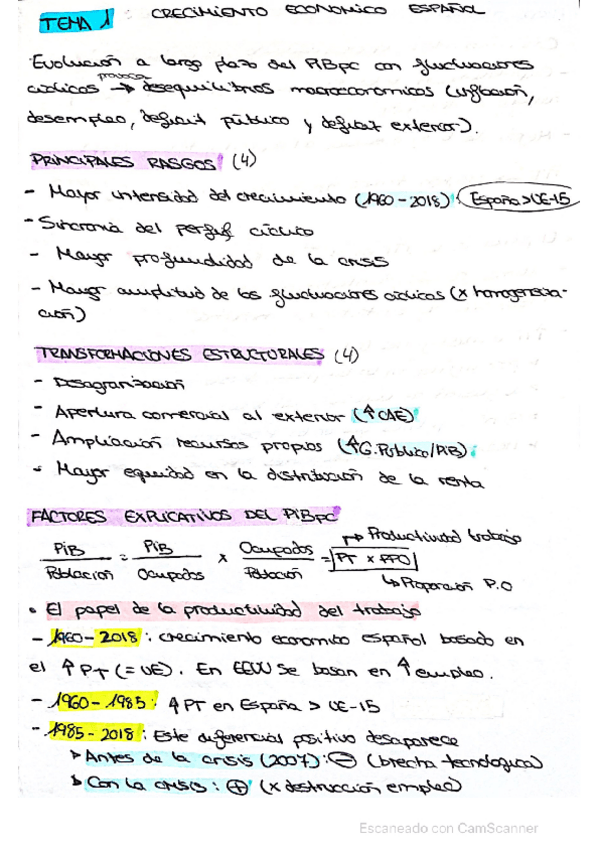 TEMA 1 : CRECIMIENTO ECONOMICO ESPAÑOL
Evolución a largo plazo del PIBpc con fluctuaciones
provoca
cíclicas → desequilibrios macroeconómicos (inflación,
desempleo, deficit público y deficit exterior).
PRINCIPALES RASGOS (4)
- Mayor intensidad del crecimiento (1960-2018) España>UE-15
- Sincronia del perfil cíclico
- Mayor profundidad de la crisis
- Mayor amplitud de las fluctuaciones cíclicas (x homogeneiza-
ción)
TRANSFORMACIONES ESTRUCTURALES (4)
- Desagrarización
- Apertura comercial al exterior (↑CAE)
- Ampliación recursos propios (↑G.Público/PIB)
- Mayor equidad en la distribución de la renta
FACTORES EXPLICATIVOS DEL PIBPC
↱ Productividad trabajo
PIB / Población = PIB / Ocupados x Ocupados / Población = PT x PPO
↳ Proporción P.O
• El papel de la productividad del trabajo
- 1960-2018: crecimiento economico español basado en
el ↑ PT (= UE). En EEUU se basan en ↑ empleo.
- 1960-1985: ↑ PT en España > UE-15
- 1985-2018: Este diferencial positivo desaparece
▸ Antes de la crisis (2007): ⊖ (brecha tecnologica)
↳ Con la crisis: ⊕ (x destrucción empleo)
Escaneado con CamScanner